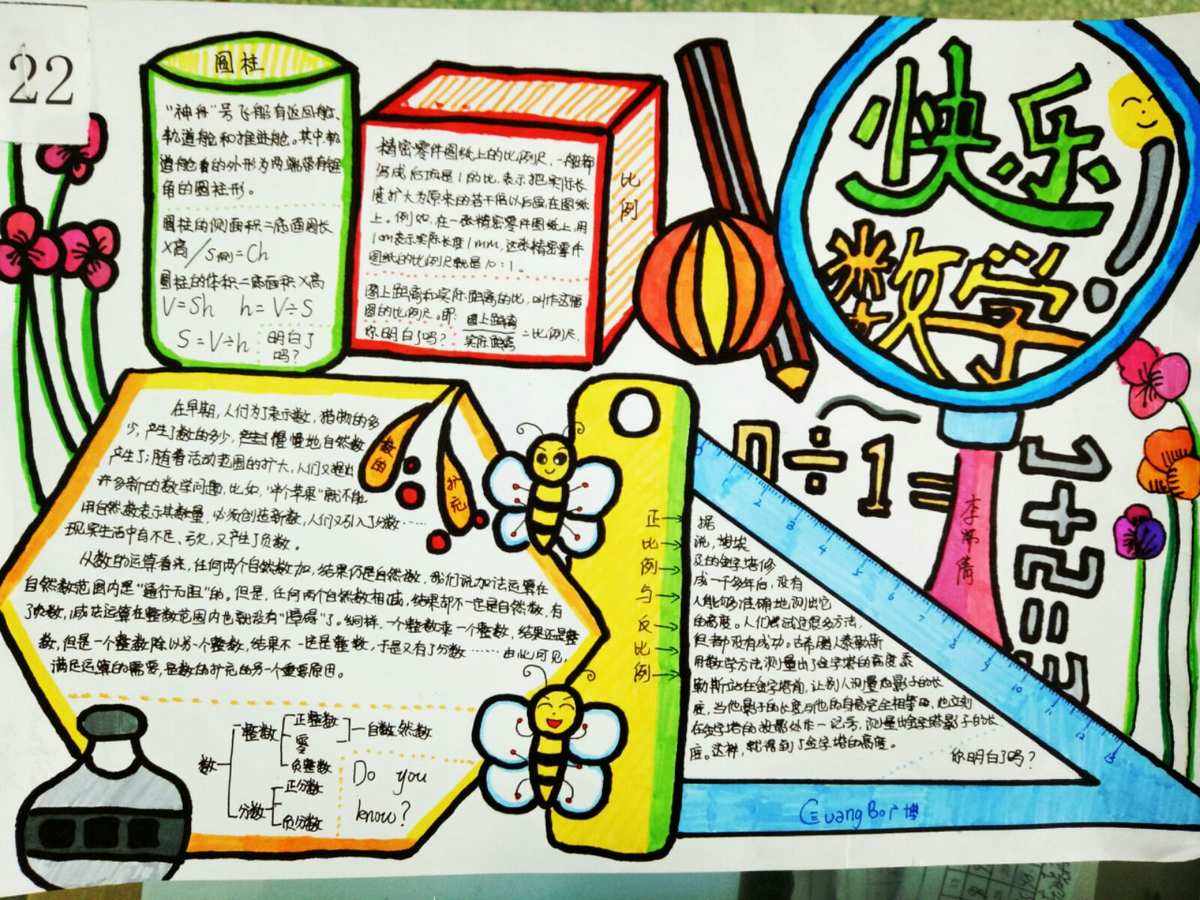 22
圆柱
"神舟"号飞船有返回舱、
轨道舱和推进舱。其中轨
道舱的外形为两端带有锥
角的圆柱形。
圆柱的侧面积=底面周长
×高/S侧=Ch
圆柱的体积=底面积×高
V=Sh h=V÷S
S=V÷h 明白了
吗?
精密零件图纸上的比例尺,一般都
写成后项是1的比,表示把实际长
度扩大为原来的若干倍以后画在图纸
上。例如,在一张精密零件图纸上,用
1cm表示实际长度1mm,这张精密零件
图纸的比例尺就是10:1。
图上距离和实际距离的比,叫作这幅
图的比例尺。即:图上距离
实际距离
=比例尺,
你明白了吗?
比例
快乐
数学!
0÷1=
1+2=3
李
倩
在早期,人们为了表示数,猎物的多
少,产生了数的多少,慢慢地自然数
产生了;随着活动范围的扩大,人们又提出
许多新的数学问题,比如,"半个苹果"就不能
用自然数表示其数量,必须创造新数,人们又引入了分数……
现实生活中有不足、亏欠,又产生了负数。
从数的运算看来,任何两个自然数加,结果仍是自然数,我们说加法运算在
自然数范围内是"通行无阻"的。但是,任何两个自然数相减,结果却不一定是自然数,有
了负数,减法运算在整数范围内也就没有"障碍"了。同样,一个整数乘一个整数,结果还是整
数,但是一个整数除以另一个整数,结果不一定是整数,于是又有了分数……由此可见,
满足运算的需要,是数的扩充的另一个重要原因。
数的
扩充
数
整数
正整数
零
负整数
自然数
分数
正分数
负分数
Do you
know?
正比例与反比例
据
说,埃
及的金字塔修
成一千多年后,没有
人能够准确地测出它
的高度。人们尝试过很多方法,
但都没有成功。古希腊人泰勒斯
用数学方法测量出了金字塔的高度。泰
勒斯站在金字塔前,让别人测量他影子的长
度,当他影子的长度与他的身高完全相等时,他立刻
在金字塔的投影处作一记号,测量出金字塔影子的长
度。这样,就得到了金字塔的高度。
你明白了吗?
GuangBo广博